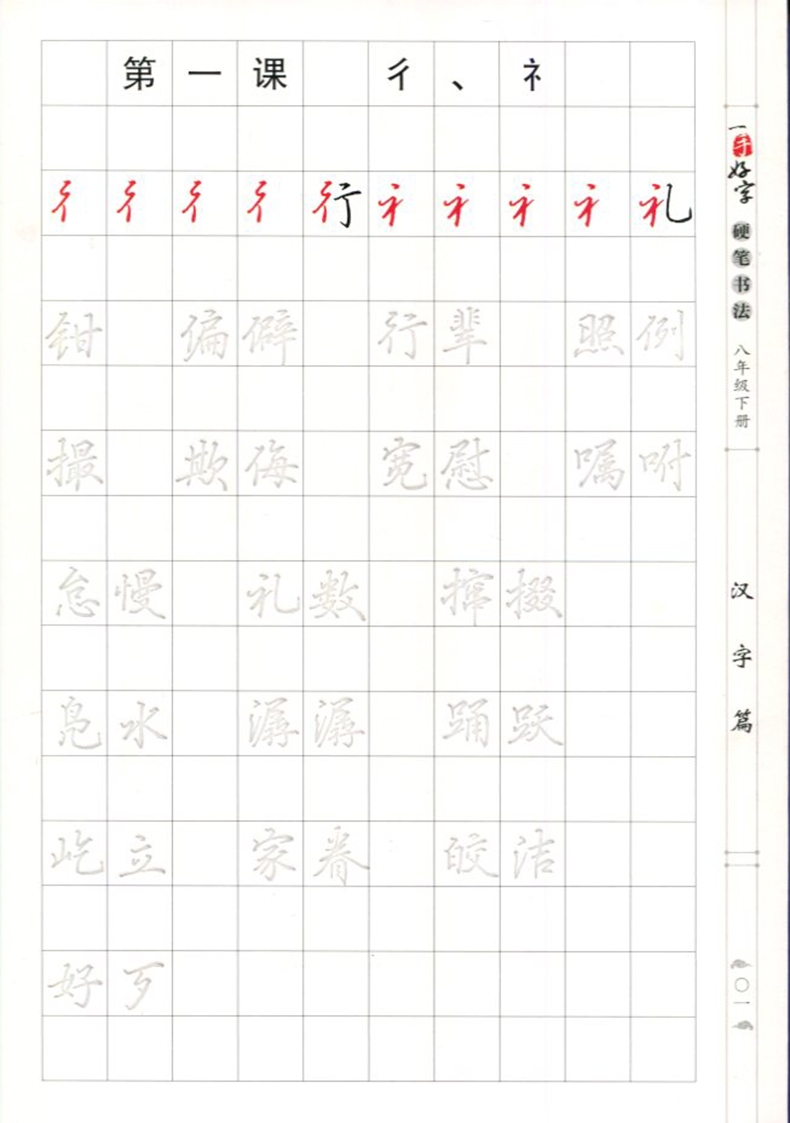 第一课 彳、礻
彳 彳 彳 彳 行 礻 礻 礻 礻 礼
钳 偏僻 行辈 照例
撮 欺侮 宽慰 嘱咐
怠慢 礼数 撺掇
凫水 潺潺 踊跃
屹立 家眷 皎洁
好歹
一手好字
硬笔书法
八年级下册
汉字篇
〇一